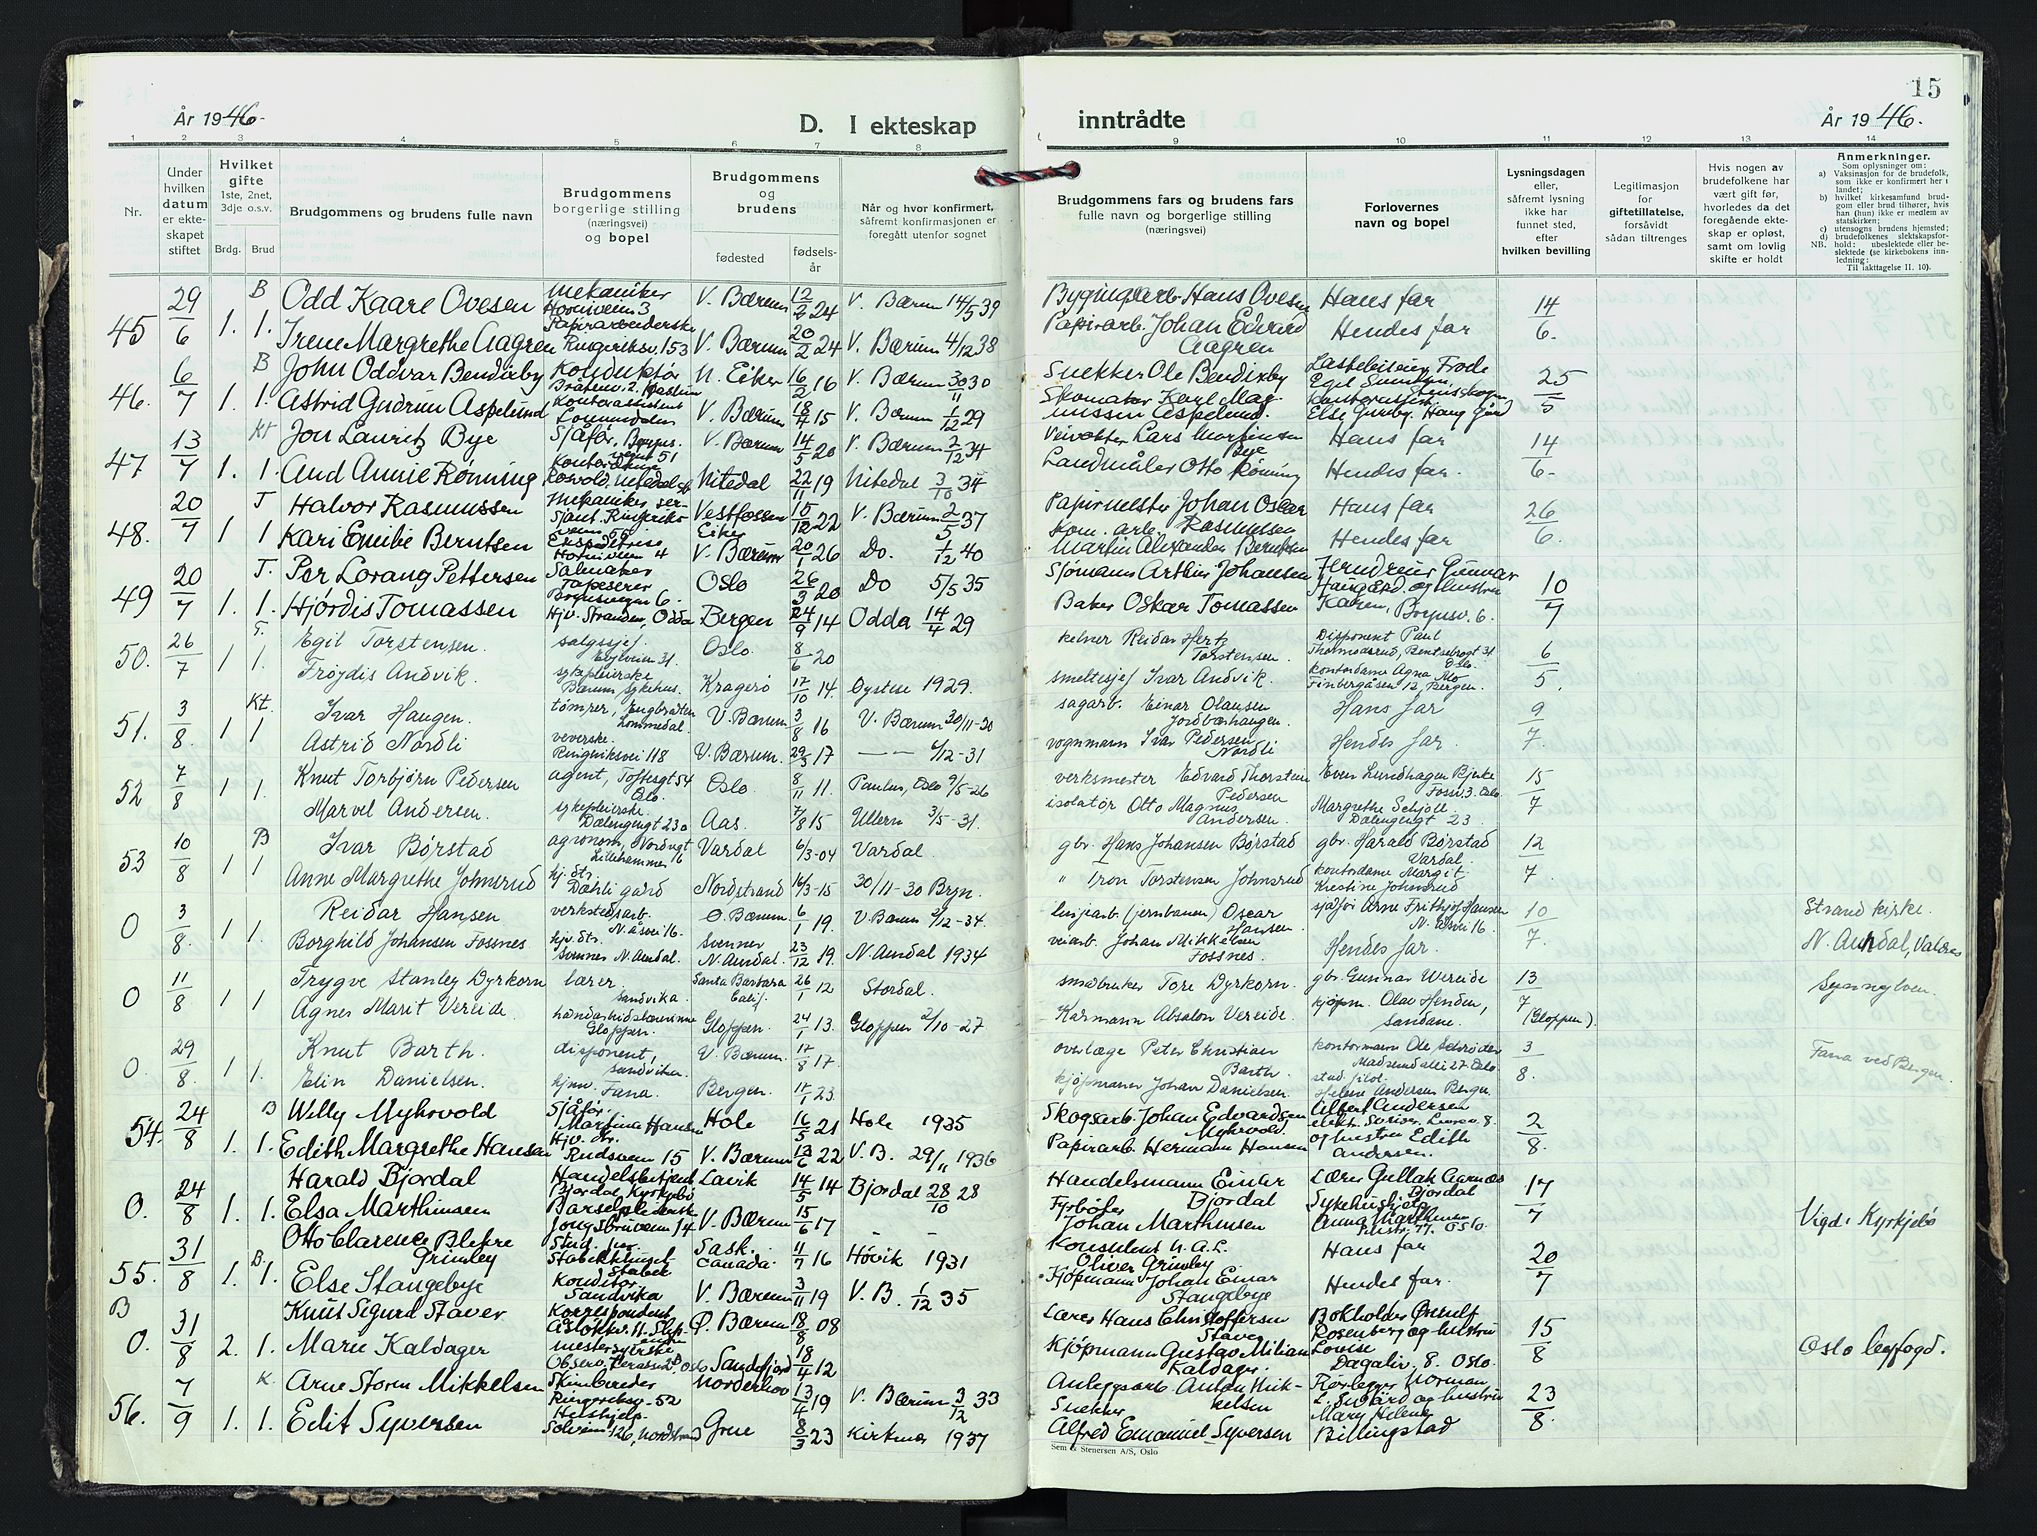 År 1946-
D. I ekteskap
1 2 3 4 5 6 7 8
Nr.
Under hvilken datum er ekteskapet stiftet
Hvilket gifte 1ste, 2net, 3dje o.s.v.
Brdg. Brud
Brudgommens og brudens fulle navn
Brudgommens borgerlige stilling (næringsvei) og bopel
Brudgommens og brudens
fødested
fødselsår
Når og hvor konfirmert, såfremt konfirmasjonen er foregått utenfor sognet
45 29/6 1. 1. B
Odd Kaare Ovesen Mekaniker V. Bærum 12/2 24 V. Bærum 14/5 39
Irene Margrethe Aagren Ringeriksv. 153 V. Bærum 20/2 24 V. Bærum 4/12 38
46. 6/7 1. 1. B
John Oddvar Bendixby Konduktør N. Eiker 16/2 16 V. Bærum 30/11 30
Astrid Gudrun Aspelund Kontorassistent Lommedalen V. Bærum 18/4 15 V. Bærum 1/12 29
47 13/7 1. 1. Kt
Jon Lauritz Bye Sjåfør, V. Bærum 14/5 20 V. Bærum 2/12 34
Aud Annie Rönning Nitedal 22/11 19 Nitedal 3/10 34
48. 20/7 1 1 T
Halvor Rasmussen Vestfossen Eiker 10/12 22 V. Bærum 2/5 37
Kari Emilie Berntsen Ekspeditrise 4 V. Bærum 20/1 26 Do. 1/12 40
49 20/7 1. 1. T.
Per Lorang Pettersen Salmaker Tapeserer 6. Oslo 26/3 20 Do 5/5 35
Hjördis Tomassen Hjv. Stranden, Odda Bergen 24/9 14 Odda 14/4 29
50. 26/7 1 1. T.
Egil Torstensen. salgssjef. 31. Oslo. 8/6-20
Frøydis Andvik. sykepleierske Bærum Sykehus. Kragerø 17/10 14. Øystese 1929.
51. 3/8. 1 1 Kt.
Ivar Haugen. tømrer, Lommedal V. Bærum 3/8 16 V. Bærum 30/11-30
Astrid Nordli veverske. Ringeriksvei 118 V. Bærum. 29/3-17 – – 6/12-31
52 7/8 1 1.
Knut Torbjørn Pedersen agent, Toftesgt 54 Oslo. Oslo 8/11 11. Paulus, Oslo 9/5-26
Marvel Andersen. sykepleierske. Dælengengt 23a Aas. 7/8 15 Ullern 3/5-31.
53 10/8 1 1 B
Ivar Børstad agronom, Nordregt Lillehammer 16 Vardal 6/3-04 Vardal.
Anne Margrethe Johnsrud hj. str. Dæhli gård Nordstrand 16/3-15 30/11-30 Bryn.
0 3/8. 1 1.
Reidar Hansen verkstedsarb. N. åsvei 16. Ø. Bærum. 6/1 19. V. Bærum 2/12-34.
Borghild Johansen Fossnes hjv. str. Svennes N. Aurdal. Svennes N. Aurdal. 23/12 19. N. Aurdal 1934
0 11/8 1 1
Trygve Stanley Dyrkorn lærer sandvika. Santa Barbara Calif. 26/1 12 Stordal.
Agnes Marit Vereide. håndarbeidslærerinne Gloppen. Gloppen. 24/1 13. Gloppen 2/10-27
0. 29/8. 1 1.
Knut Barth. disponent, sandviken. V. Bærum. 17/8 17.
Elin Danielsen. hjmv. Fana. Bergen. 17/1 23
54. 24/8 1. 1. B
Willy Myhrvold Sjåfør. Hole 16/5 21 Hole 1935
Edith Margrethe Hansen Hjv. dr. Rudsveien 15 V. Bærum 13/6 22 V.B. 29/11 1936
0. 24/8 1. 1.
Harald Bjordal Handelsbetjent Bjordal, Kyrkjebø Lavik 14/5 14 Bjordal 28/10 28
Elsa Marthinsen V. Bærum 15/6 17 –
55. 31/8 1. 1. B.
Otto Clarence Blekre Grimley Stud. Stabekk Sask. Canada. 11/7 16 Høvik 1931
Else Stangebye Konditor. Sandvika V. Bærum 3/11 19 V.B. 1/12 35
B
0. 31/8 2. 1.
Knut Sigurd Staver Korrespondent Ø. Bærum 18/8 08
Marie Kaldager Sandefjord 18/4 12
56. 7/9 1. 1. K.
Arne Storm Mikkelsen Ringeriksv. 52 Norderhov 13/4 19 V. Bærum 3/12 33
Edit Syversen Hushjelp. Solveien 126, Nordstrand Grue 8/3 23 Kirkenær 1937
15
inntrådte
År 1946.
9 10 11 12 13 14
Brudgommens fars og brudens fars fulle navn og borgerlige stilling (næringsvei)
Forlovernes navn og bopel
Lysningsdagen eller, såfremt lysning ikke har funnet sted, efter hvilken bevilling
Legitimasjon for giftetillatelse, forsåvidt sådan tiltrenges
Hvis nogen av brudefolkene har vært gift før, hvorledes da det foregående ekteskap er opløst, samt om lovlig skifte er holdt
Anmerkninger.
Som oplysninger om:
a) Vaksinasjon for de brudefolk, som ikke er konfirmert her i landet;
b) hvilket kirkesamfund brudgom eller brud tilhører, hvis han (hun) ikke er medlem av statskirken;
c) utensogns brudens hjemsted;
d) brudefolkenes slektskapsforhold: ubeslektede eller beslektede (se kirkebokens innledning:
NB. Til iakttagelse II. 10).
Bygningsarb. Hans Ovesen Hans far 14/6.
Papirarb. Johan Edvard Aagren Hendes far
Snekker Ole Bendixby 25/5
Skomaker Karl Magnussen Aspelund.
Veivokter Lars Martinsen Bye Hans far 14/6-
Landmåler Otto Rönning Hendes far.
Papirmester Johan Oskar Rasmussen Hans far 26/6.
Kom. arb. Martin Alexander Berntsen Hendes far
Sjömann Arthur Johansen 10/7
Baker Oskar Tomassen Karen, 6.
kelner Reidar Hertz Torstensen. Disponent Paul Thormodsrud, Bentsebrogt 31 Oslo. 6/5.
smeltesjef Ivar Andvik. kontordame Agna Mo Finbergåsen 12, Bergen.
sagarb. Einar Olausen Jordbærhaugen. Hans far 9/7.
vognmann Ivar Pedersen Nordli Hendes far.
verksmester Edvard Thorstein Pedersen Even Lundhagen Bjerke Fossv. 3. Oslo. 15/7
isolatør Otto Magnus Andersen. Margrethe Schjøll. Dælengengt 23.
gbr. Hans Johansen Børstad gbr. Harald Børstad Vardal. 12/7.
" Tron Torstensen Johnsrud kontordame Margit Kristine Johnsrud
linjearb. (jernbanen) Oscar Hansen. sjåfør Arne Frithjof Hansen N. åsvei 16. 10/7. Strand kirke.
veiarb. Johan Mikkelsen Fossnes. Hendes far. N. Aurdal, Valdres
småbruker Tore Dyrkorn. gbr. Gunnar Vereide 13/7 (Gloppen). Synnylven.
Kårmann Absalon Vereide. kjøpm. Olav Henden, Sandane.
overlæge Peter Christian Barth. kontormann Ole Schrøder Madserud alle 27 Oslo 3/8. Fana ved Bergen.
kjøpmann Johan Danielsen. stud. filol. Helene Andersen Bergen.
Skogsarb. Johan Edvardsen Myhrvold. Albert Andersen 2/8.
Papirarb. Hermann Hansen og hustru Edith Andersen.
Handelsmann Einar Bjordal Lærer Gullak Aarnæs Bjordal 17/7 Vigd i Kyrkjebø
Fyrbøter Johan Marthinsen Anna Marthinsen Oslo.
Konsulent N.A.L. Oliver Grimley Hans far 20/7
Kjøpmann Johan Einar Stangebye Hendes far.
Lærer Hans Christoffersen Staver Bokholder Rosenberg og hustru Louise 15/8 Oslo byfogd.
Kjøpmann Gustav Milian Kaldager. Dagaliv. 8. Oslo.
Anleggsarb. Anton Mikkelsen Rørlegger Norman og hustru 23/8.
Snekker Alfred Emanuel Syversen Mary Helene Billingstad
Sem & Stenersen A/S, Oslo